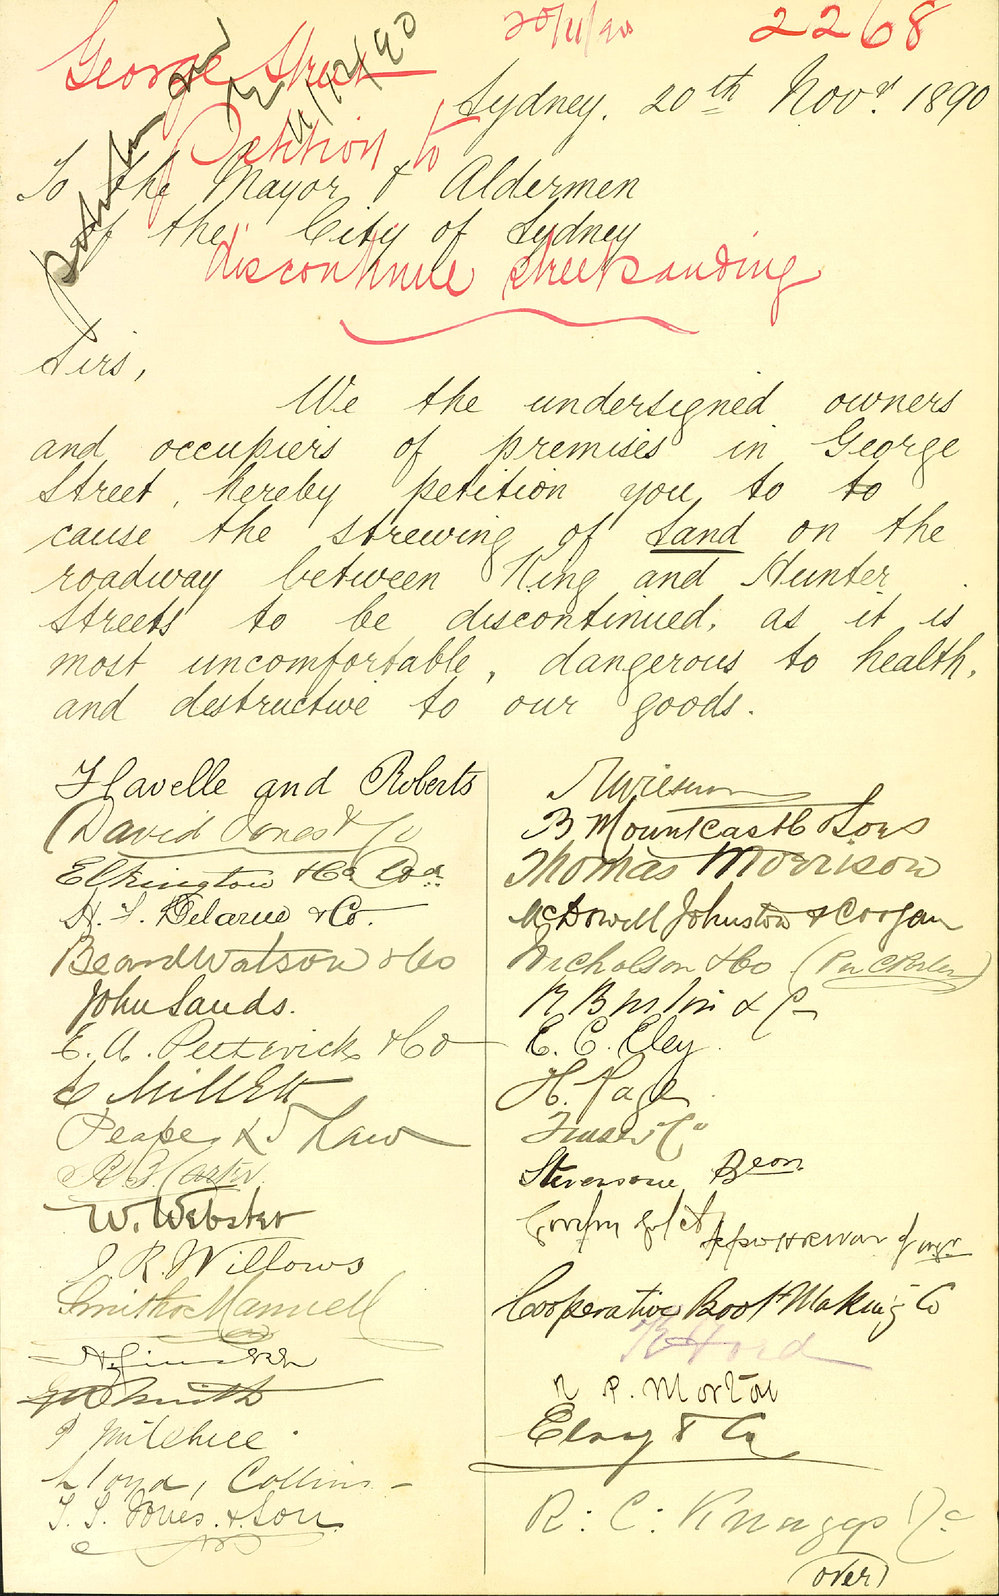 20/11/90
2268
George Street
Petition to
discontinue street sanding
Sydney, 20th Novr 1890
To the Mayor & Aldermen
of the City of Sydney
Sirs,
We the undersigned owners
and occupiers of premises in George
Street, hereby petition you, to to
cause the strewing of Sand on the
roadway between King and Hunter
Streets to be discontinued, as it is
most uncomfortable, dangerous to health,
and destructive to our goods.
Flavelle and Roberts
David Jones & Co
Elkington & Co
H. T. Delarue & Co.
Beard Watson & Co
John Sands.
E. A. Pettwick & Co
Millett
Peape & Shaw
Carter
W. Webster
J R. Willows
Smith & Mannell
Smith
Mitchell
Lloyd, Collins
T. S. Jones & Son
B Mountcastle & Sons
Thomas Morrison
McDowell Johnston & Coogan
Nicholson & Co
& Co
E. C. Eley
H. Page
Stevenson Bean
Cooperative Boot Making Co
Ford
P. Morton
Elvy & Co
R: C: Knaggs & Co
(over)